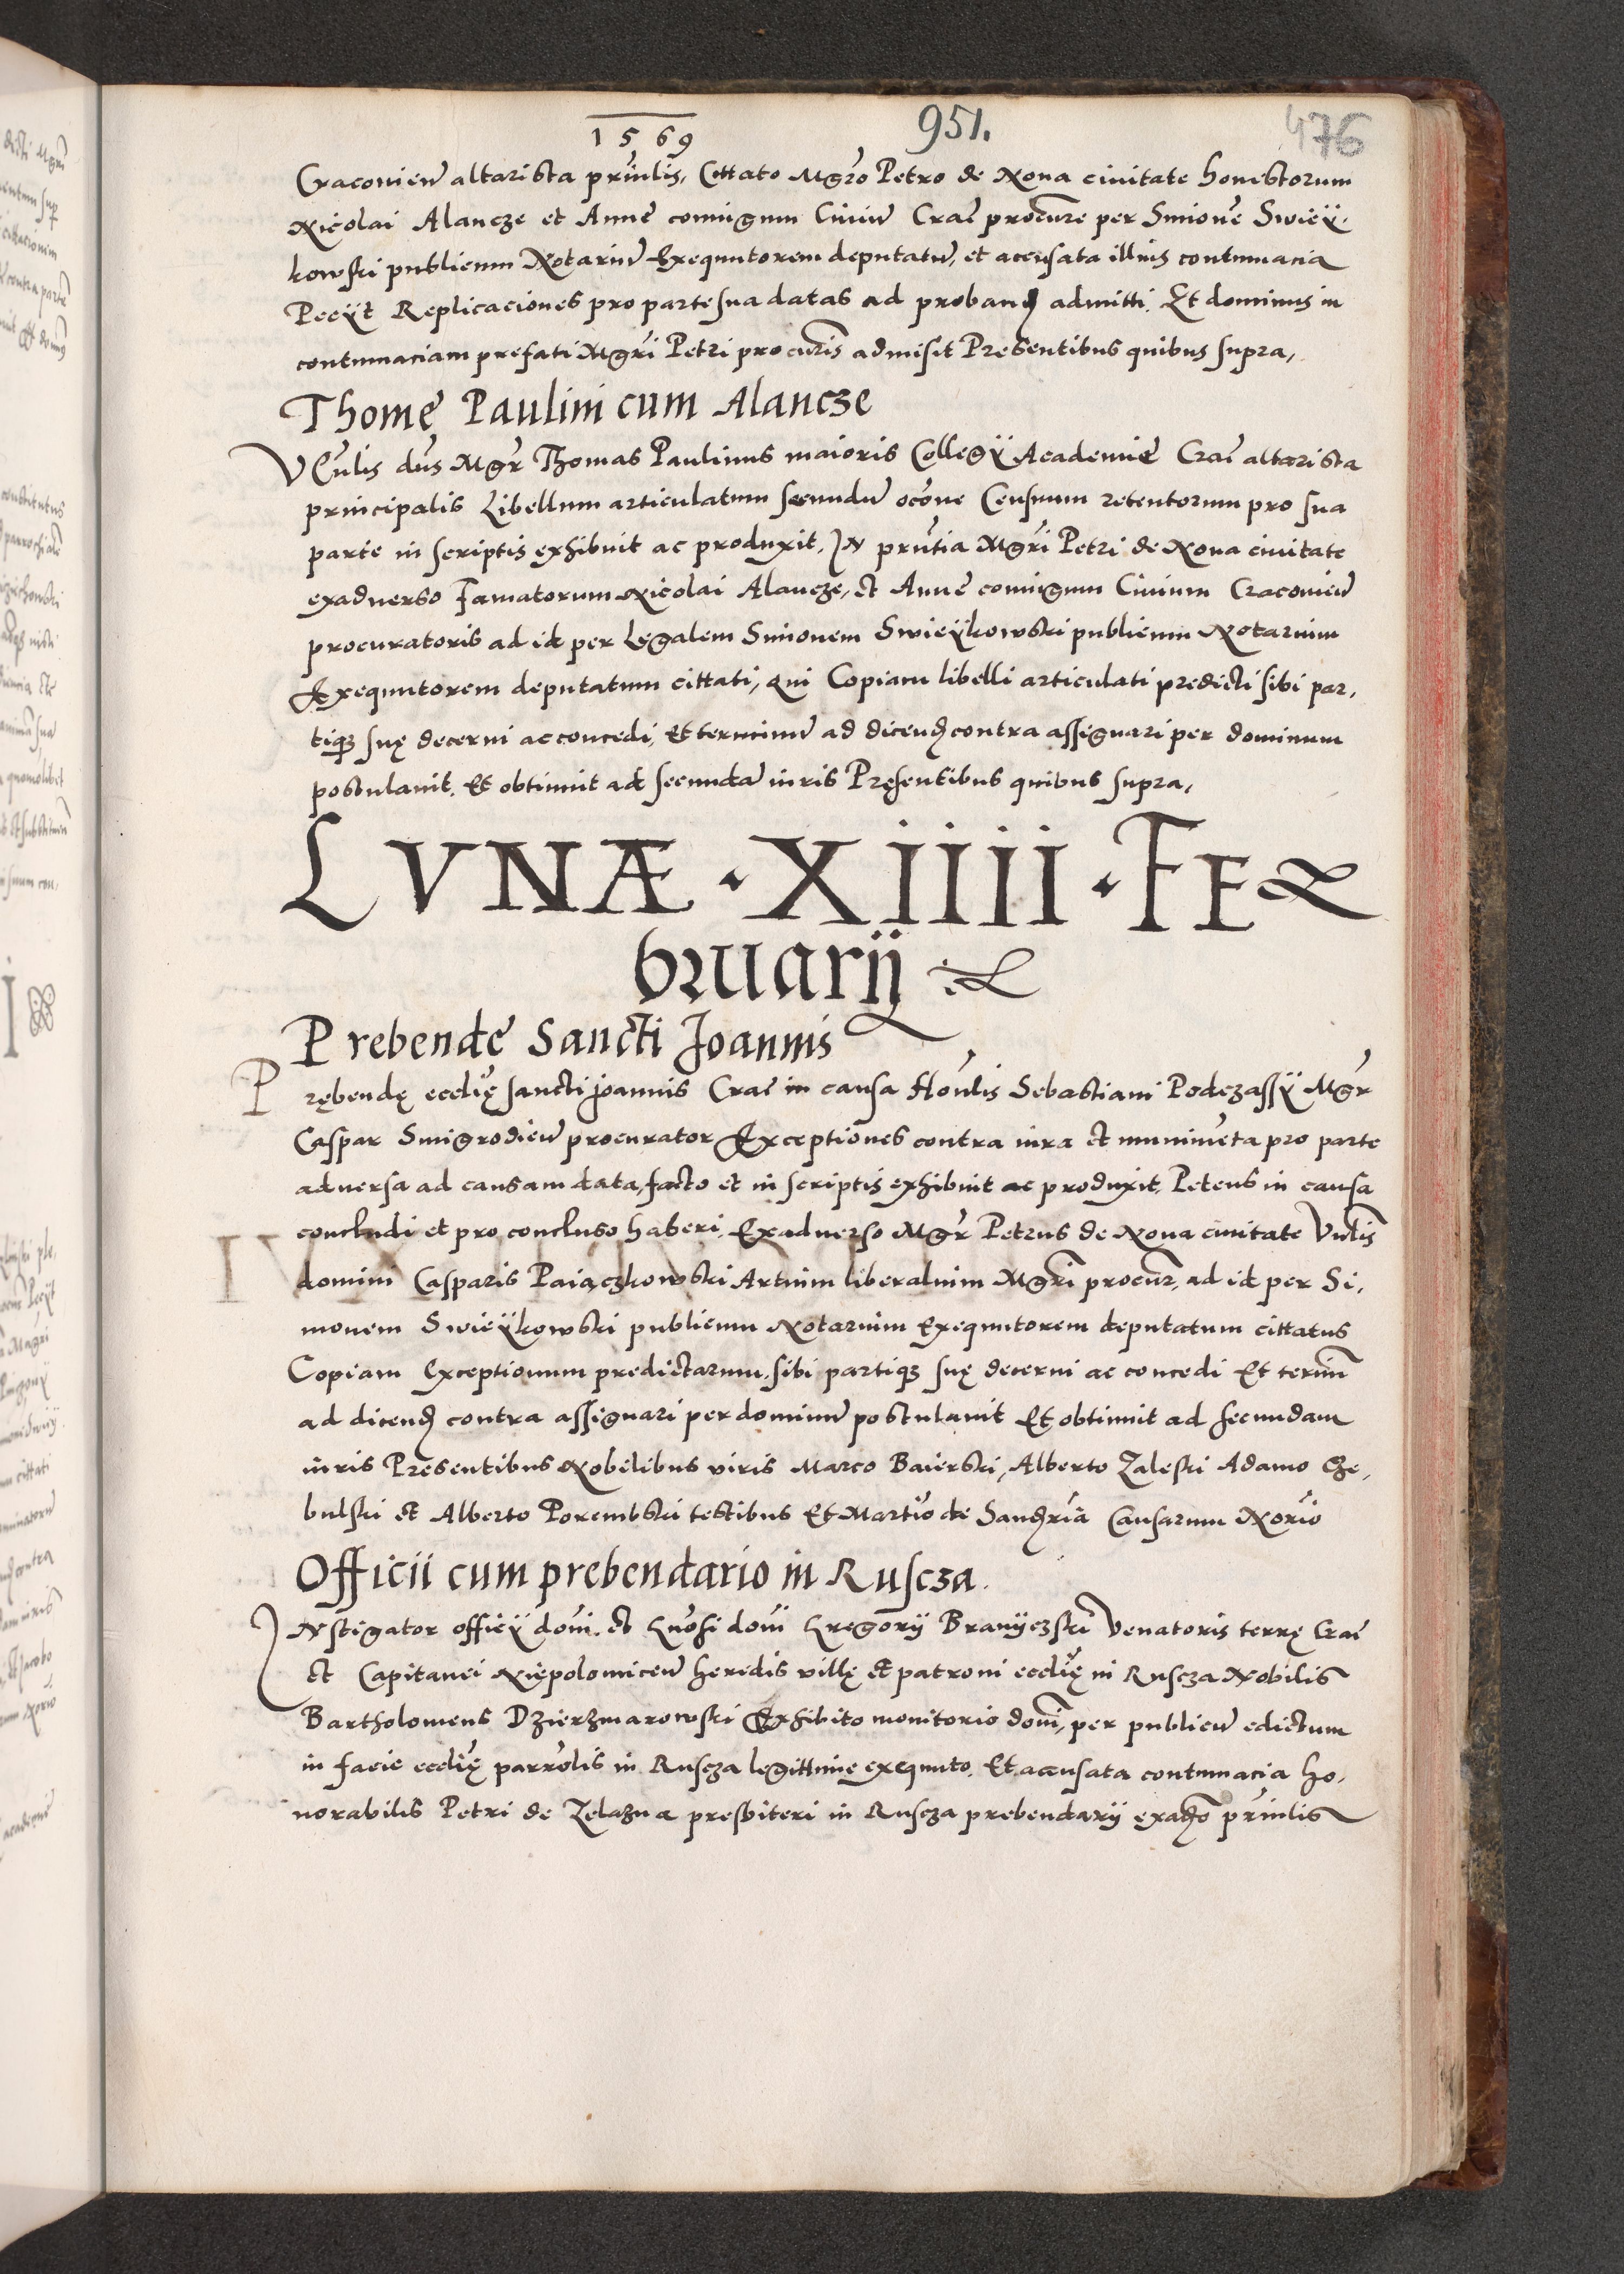 1569
951.
476
Cracovien altarista prinlis, Cittato Mgro Petro de Nova civitate honestorum
Nicolai Alancze et Anne coniugum Civiu Crac procure per Simone Swiey-
kowski publicum Notariu Exequutorem deputatu, et accusata illius contumacia
Peciit Replicaciones pro parte sua datas ad proband admitti. Et dominus in
contumaciam prefati Mgri Petri procuris admisit Presentibus quibus supra,
Thome Paulini cum Alancze
Venlis dns Mgr Thomas Paulinus maioris Collegÿ Academie Crac altarista
principalis Libellum articulatum secundu occone Censuum retentorum pro sua
parte in scriptis exhibuit ac produxit, IN prntia Mgri Petri de Nova civitate
exadverso Famatorum Nicolai Alancze, et Anne coniugum Civium Cracovien
procuratoris ad id per Legalem Simonem Swieÿkowski publicum Notarium
Exequutorem deputatum cittati, qui Copiam libelli articulati predicti sibi par,
tiq3 suę decerni ac concedi, Et terminu ad dicend contra assignari per dominum
postulavit. Et obtinuit ad secunda iuris Presentibus quibus supra,
LVNÆ · XIIII · FE
bruarij
Prebende Sancti Joannis
Prębendę ecclię sancti Joannis Crac in causa Honlis Sebastiani Podczassÿ Mgr
Caspar Smigrodien procurator Exceptiones contra iura et munimeta pro parte
adversa ad causam data, facto et in scriptis exhibuit ac produxit, Petens in causa
concludi et pro concluso haberi. Exadverso Mgr Petrus de Nova civitate Vnlis
domini Casparis Paiączkowski Artium liberalium Mgri procur, ad id per Si,
monem Swieÿkowski publicum Notarium Exequutorem deputatum cittatus
Copiam Exceptionum predictarum, sibi partiq3 suę decerni ac concedi Et termin
ad dicend contra assignari per dominu postulavit Et obtinuit ad secundam
iuris Presentibus Nobilibus viris Marco Baierski, Alberto Zaleski Adamo Ce,
bulski et Alberto Porembski testibus Et Martio de Sandria Causarum Norio
Officii cum prebendario in Ruscza.
INstigator officÿ doni. et Gnosi doni Gregorij Branijczski Venatoris terrę Crac
et Capitanei Niepolomicen heredis villę et patroni ecclię in Ruscza Nobilis
Bartholomeus Dzierzmarowski Exhibito monitorio doni, per publicu edictum
in facie ecclię parrolis in Ruscza legittime exequuto. Et accusata contumacia ho,
norabilis Petri de Zelazna presbiteri in Ruscza prebendarij exadso prinlis